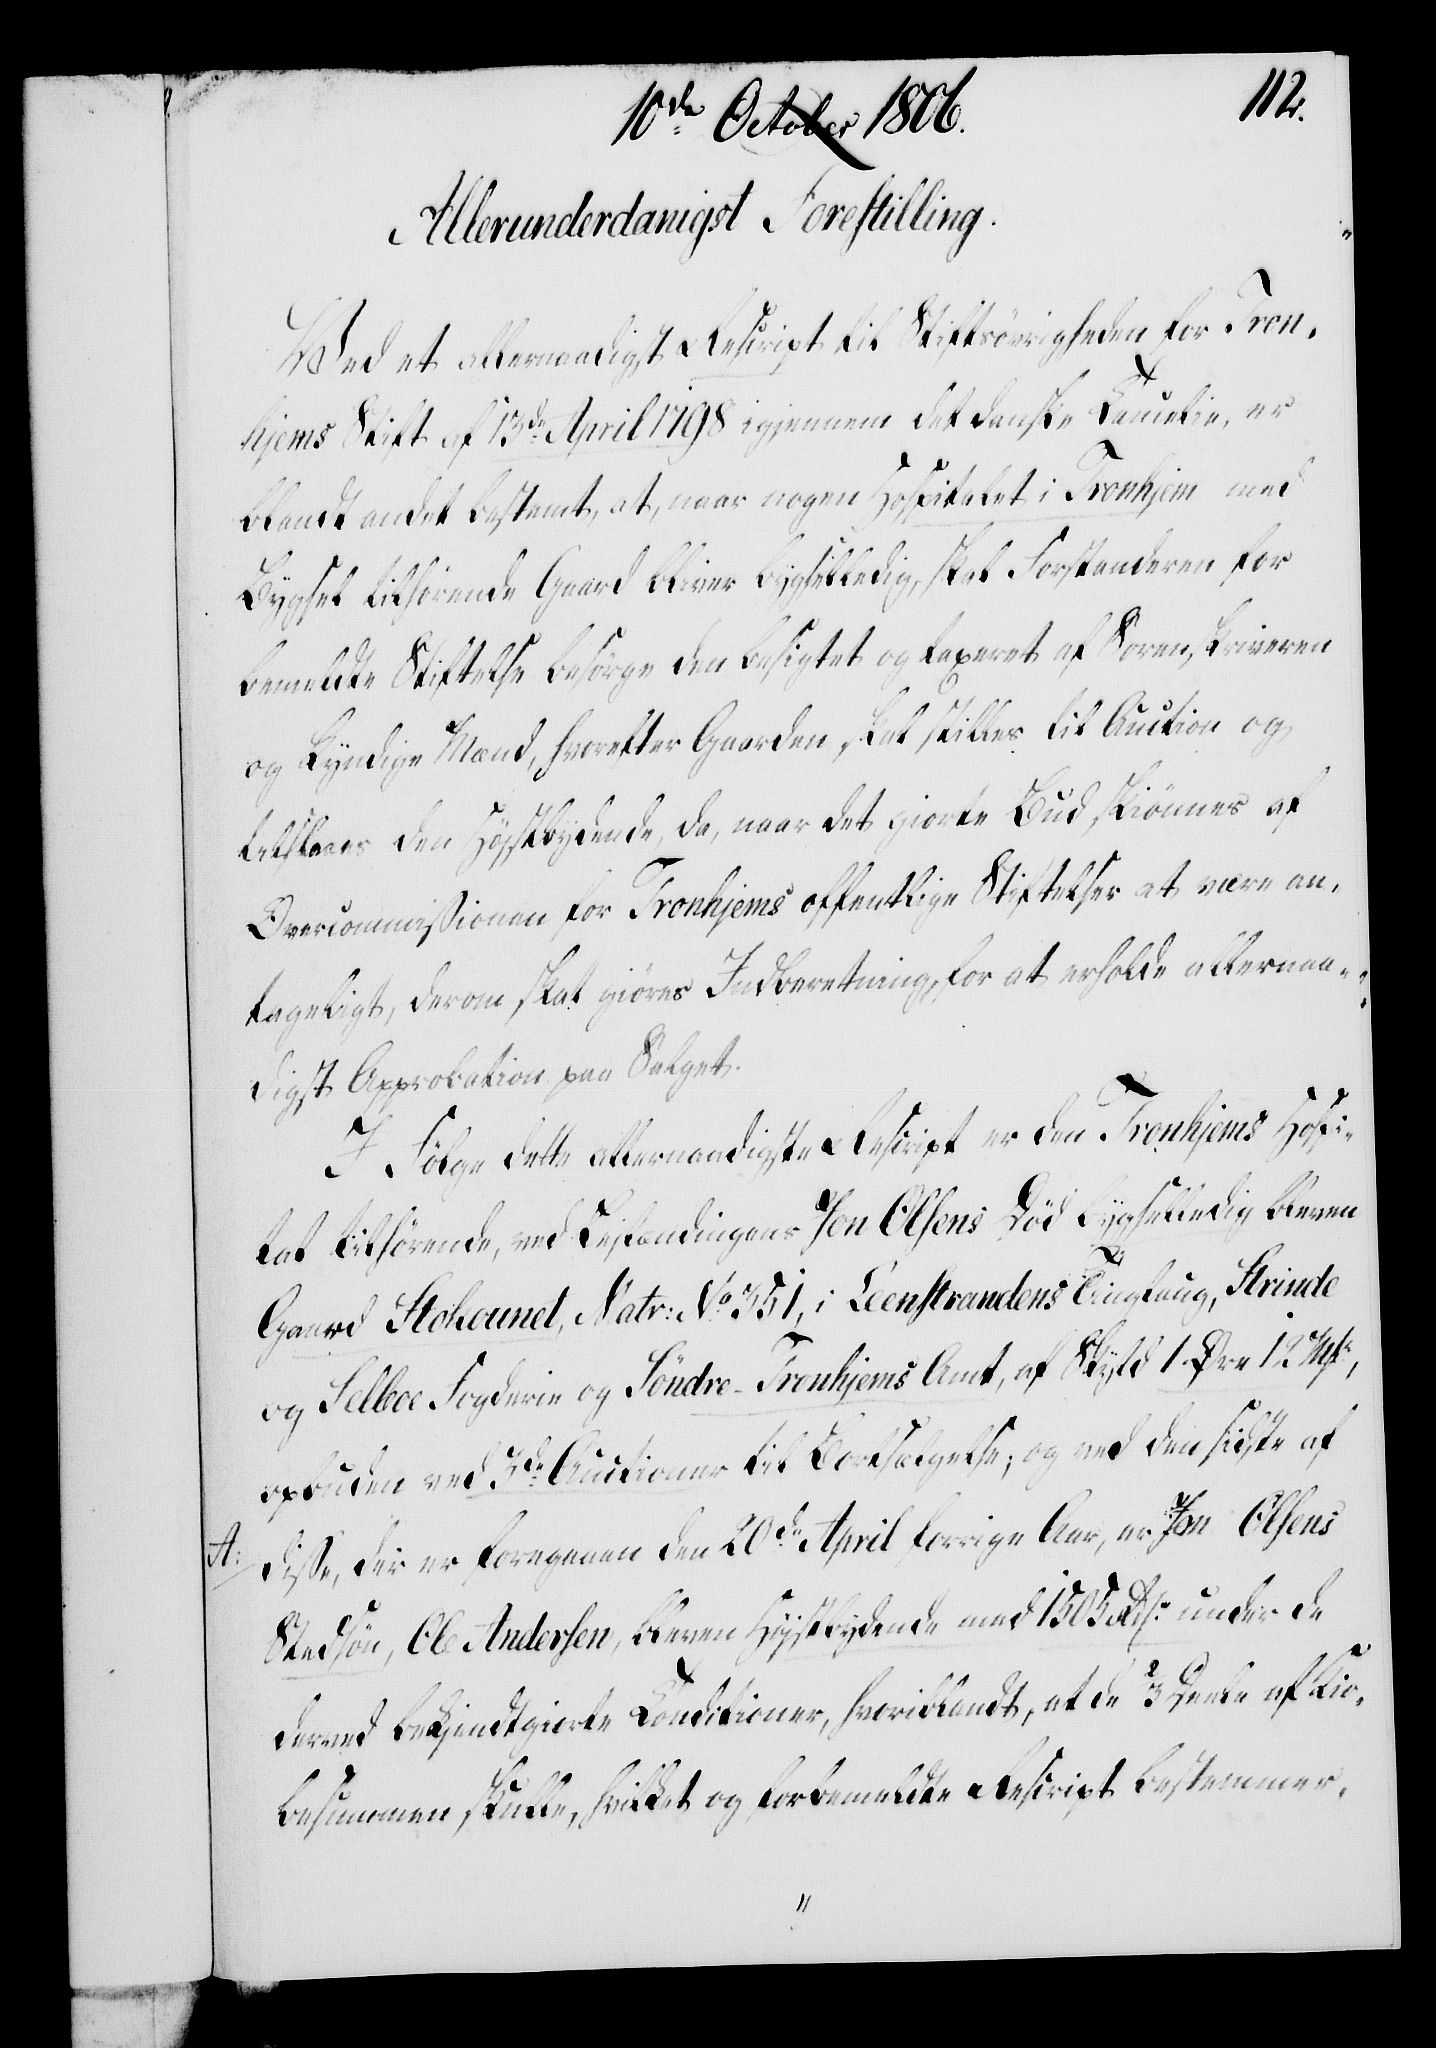 10de October 1806.
112.
Allerunderdanigst Forestilling.
Ved et allernaadigst Rescript til Stiftsövrigheden for Tron-
hjems Stift af 13de April 1798 igjennem det danske Cancelie, er
blandt andet bestemt, at, naar nogen Hospitalet i Tronhjem med
Bygsel tilhörende Gaard bliver bygselledig, skal Forstanderen for
bemeldte Stiftelse besörge den besigtet og taxeret af Sorenskriveren
og kyndige Mænd, hvorefter Gaarden skal stilles til Auction og
tilslaaes den Höjstbydende, da, naar det giorte Bud skiönnes af
Overcommissionen for Tronhjems offentlige Stiftelser at være an-
tageligt, derom skal giöres Indberetning, for at erholde allernaa-
digst Approbation paa Salget.
I Fölge dette allernaadigste Rescript er den Tronhjems Hospi-
tal tilhörende, ved Leilændingens Jon Olsens Död bygselledig blevne
Gaard Stokounet, Matr: No 351, i Leenstrandens Tinglaug, Strinde
og Selboe Fogderie og Söndre-Tronhjems Amt, af Skyld 1 Öre 12 Mk,
opbuden ved 3de Auctioner til Bortsælgelse; og ved den sidste af
A: disse, der er foregaaen den 20de April forrige Aar, er Jon Olsens
Stedsön, Ole Andersen, bleven Höjstbydende med 1505 Rdr. under de
derved bekjendtgiorte Conditioner, hvoriblandt, at de 2/3 Deele af Kiö-
besummen skulle, hvilket og forbemeldte Rescript bestemmer,
"